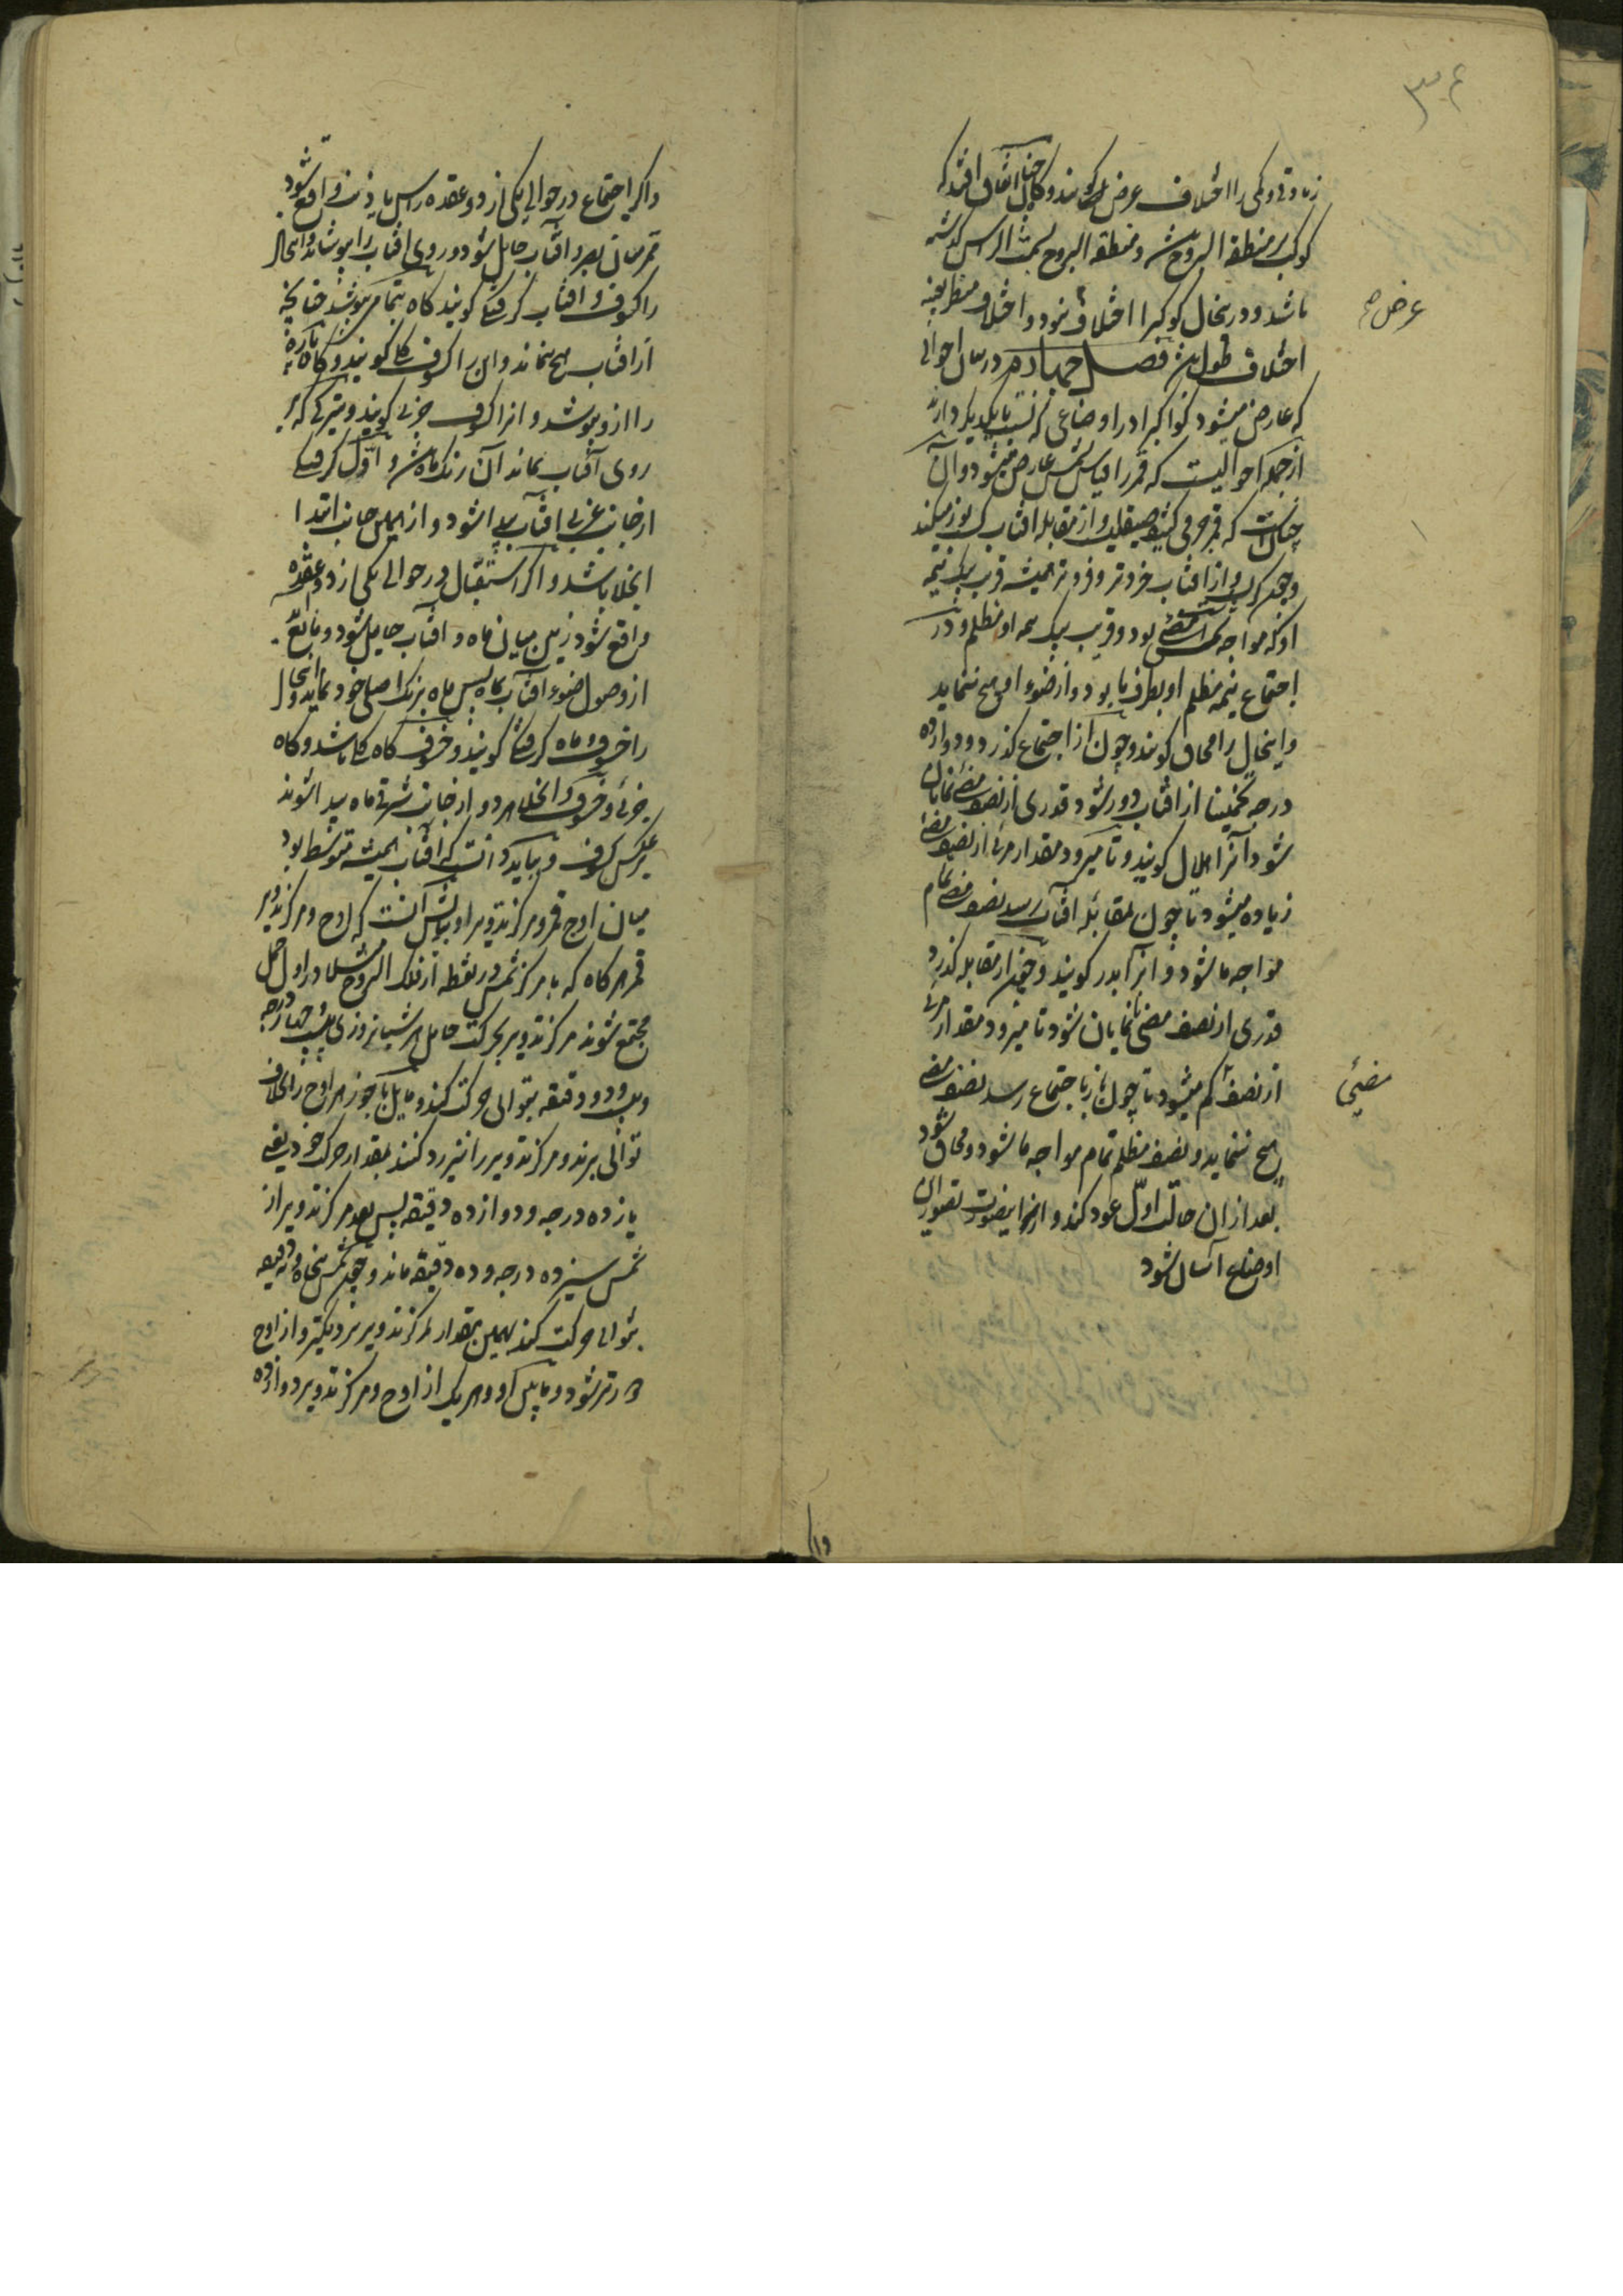 ۳۶
زیادتی و کمی را اختلاف عرض گویند و گاه چنان اتفاق افتد که
کوکب بر منطقة البروج باشد و منطقة البروج بسمت الراس گذشته
باشد و درینحال کوکبرا اختلاف عرض نبود و اختلاف منظر بعینه
عرض
اختلاف طول باشد فصل چهارم در بیان احوالی
که عارض میشود کواکبرا در اوضاعی که نسبت بایکدیگر دارند
از جمله احوالیست که قمر را بقیاس شمس عارض میشود و آن
چنانست که قمر جرمی کثیف صیقلیست و از مقابله افتاب کسب نور میکند
و چون کرده او از افتاب خردتر و فروتر همیشه قریب بیک نیمه
او که مواجه شمس است مضئ بود و قریب بیک نیمه او مظلم و در
اجتماع نیمه مظلم او بطرف ما بود و از ضوء او هیچ ننماید
و اینحال را محاق گویند و چون از اجتماع گذرد و دوازده
درجه تخمینا از افتاب دور شود قدری از نصف مضئ نمایان
شود آنرا هلال گویند و تا میرود مقدار مرئی از نصف مضئ
زیاده میشود تا چون بمقابله افتاب رسد نصف مضئ تمام
مواجه ما شود و آنرا بدر گویند و چون از مقابله گذرد
قدری از نصف مضئ نانمایان شود تا میرود مقدار مرئی
از نصف کم میشود تا چون باز باجتماع رسد نصف مضئ
مضیئی
هیچ ننماید و نصف مظلم تمام مواجه ما شود و محاق شود
بعد از ان حالت اول عود کند و ازینصورت تصور این
اوضاع آسان شود
و اگر اجتماع در حوالی یکی از دو عقده راس یا ذنب واقع شود
قمر میان بصر و افتاب حایل شود و روی افتاب را بپوشاند و اینحال
را کسوف و افتاب گرفتگی گویند گاه بتمام بپوشد چنانچه
از افتاب هیچ ننماند و این را کسوف کلی گویند و گاه پاره
را از و بپوشد و انرا کسوف جزئی گویند و تیرگی که بر
روی آفتاب نماید آن رنگ ماه باشد و اول گرفتگی
از جانب غربی افتاب پیدا شود و از همین جانب ابتدا
انجلا باشد و اگر استقبال در حوالی یکی از دو عقده
واقع شود زمین میان ماه و افتاب حایل شود و مانع
از وصول ضوء افتاب بماه پس ماه برنگ اصلی خود نماید و اینحال
را خسوف و ماه گرفتگی گویند و خسوف گاه کلی باشد و گاه
جزئی و خسوف و انجلا هر دو از جانب شرقی ماه پیدا شوند
بر عکس کسوف و بباید دانست که افتاب همیشه متوسط بود
میان اوج قمر و مرکز تدویر او بیانش آنست که اوج و مرکز تدویر
قمر هر گاه که با مرکز شمس در نقطه از فلک البروج مثلا در اول حمل
مجتمع شوند مرکز تدویر بحرکت حامل هر شبانروزی بیست چهار درجه
و بیست و دو دقیقه بتوالی حرکت کند و مایل با جوزهر اوج را بخلاف
توالی برند و مرکز تدویر را نیز رد کنند بمقدار حرکت خود یعنی
یازده درجه و دوازده دقیقه پس بعد مرکز تدویر از
شمس سیزده درجه و ده دقیقه ماند و چون شمس پنجاه و نه دقیقه
بتوالی حرکت کند بهمین مقدار بمرکز تدویر نزدیکتر و از اوج
دورتر شود و پس او و هر یک از اوج و مرکز تدویر دوازده